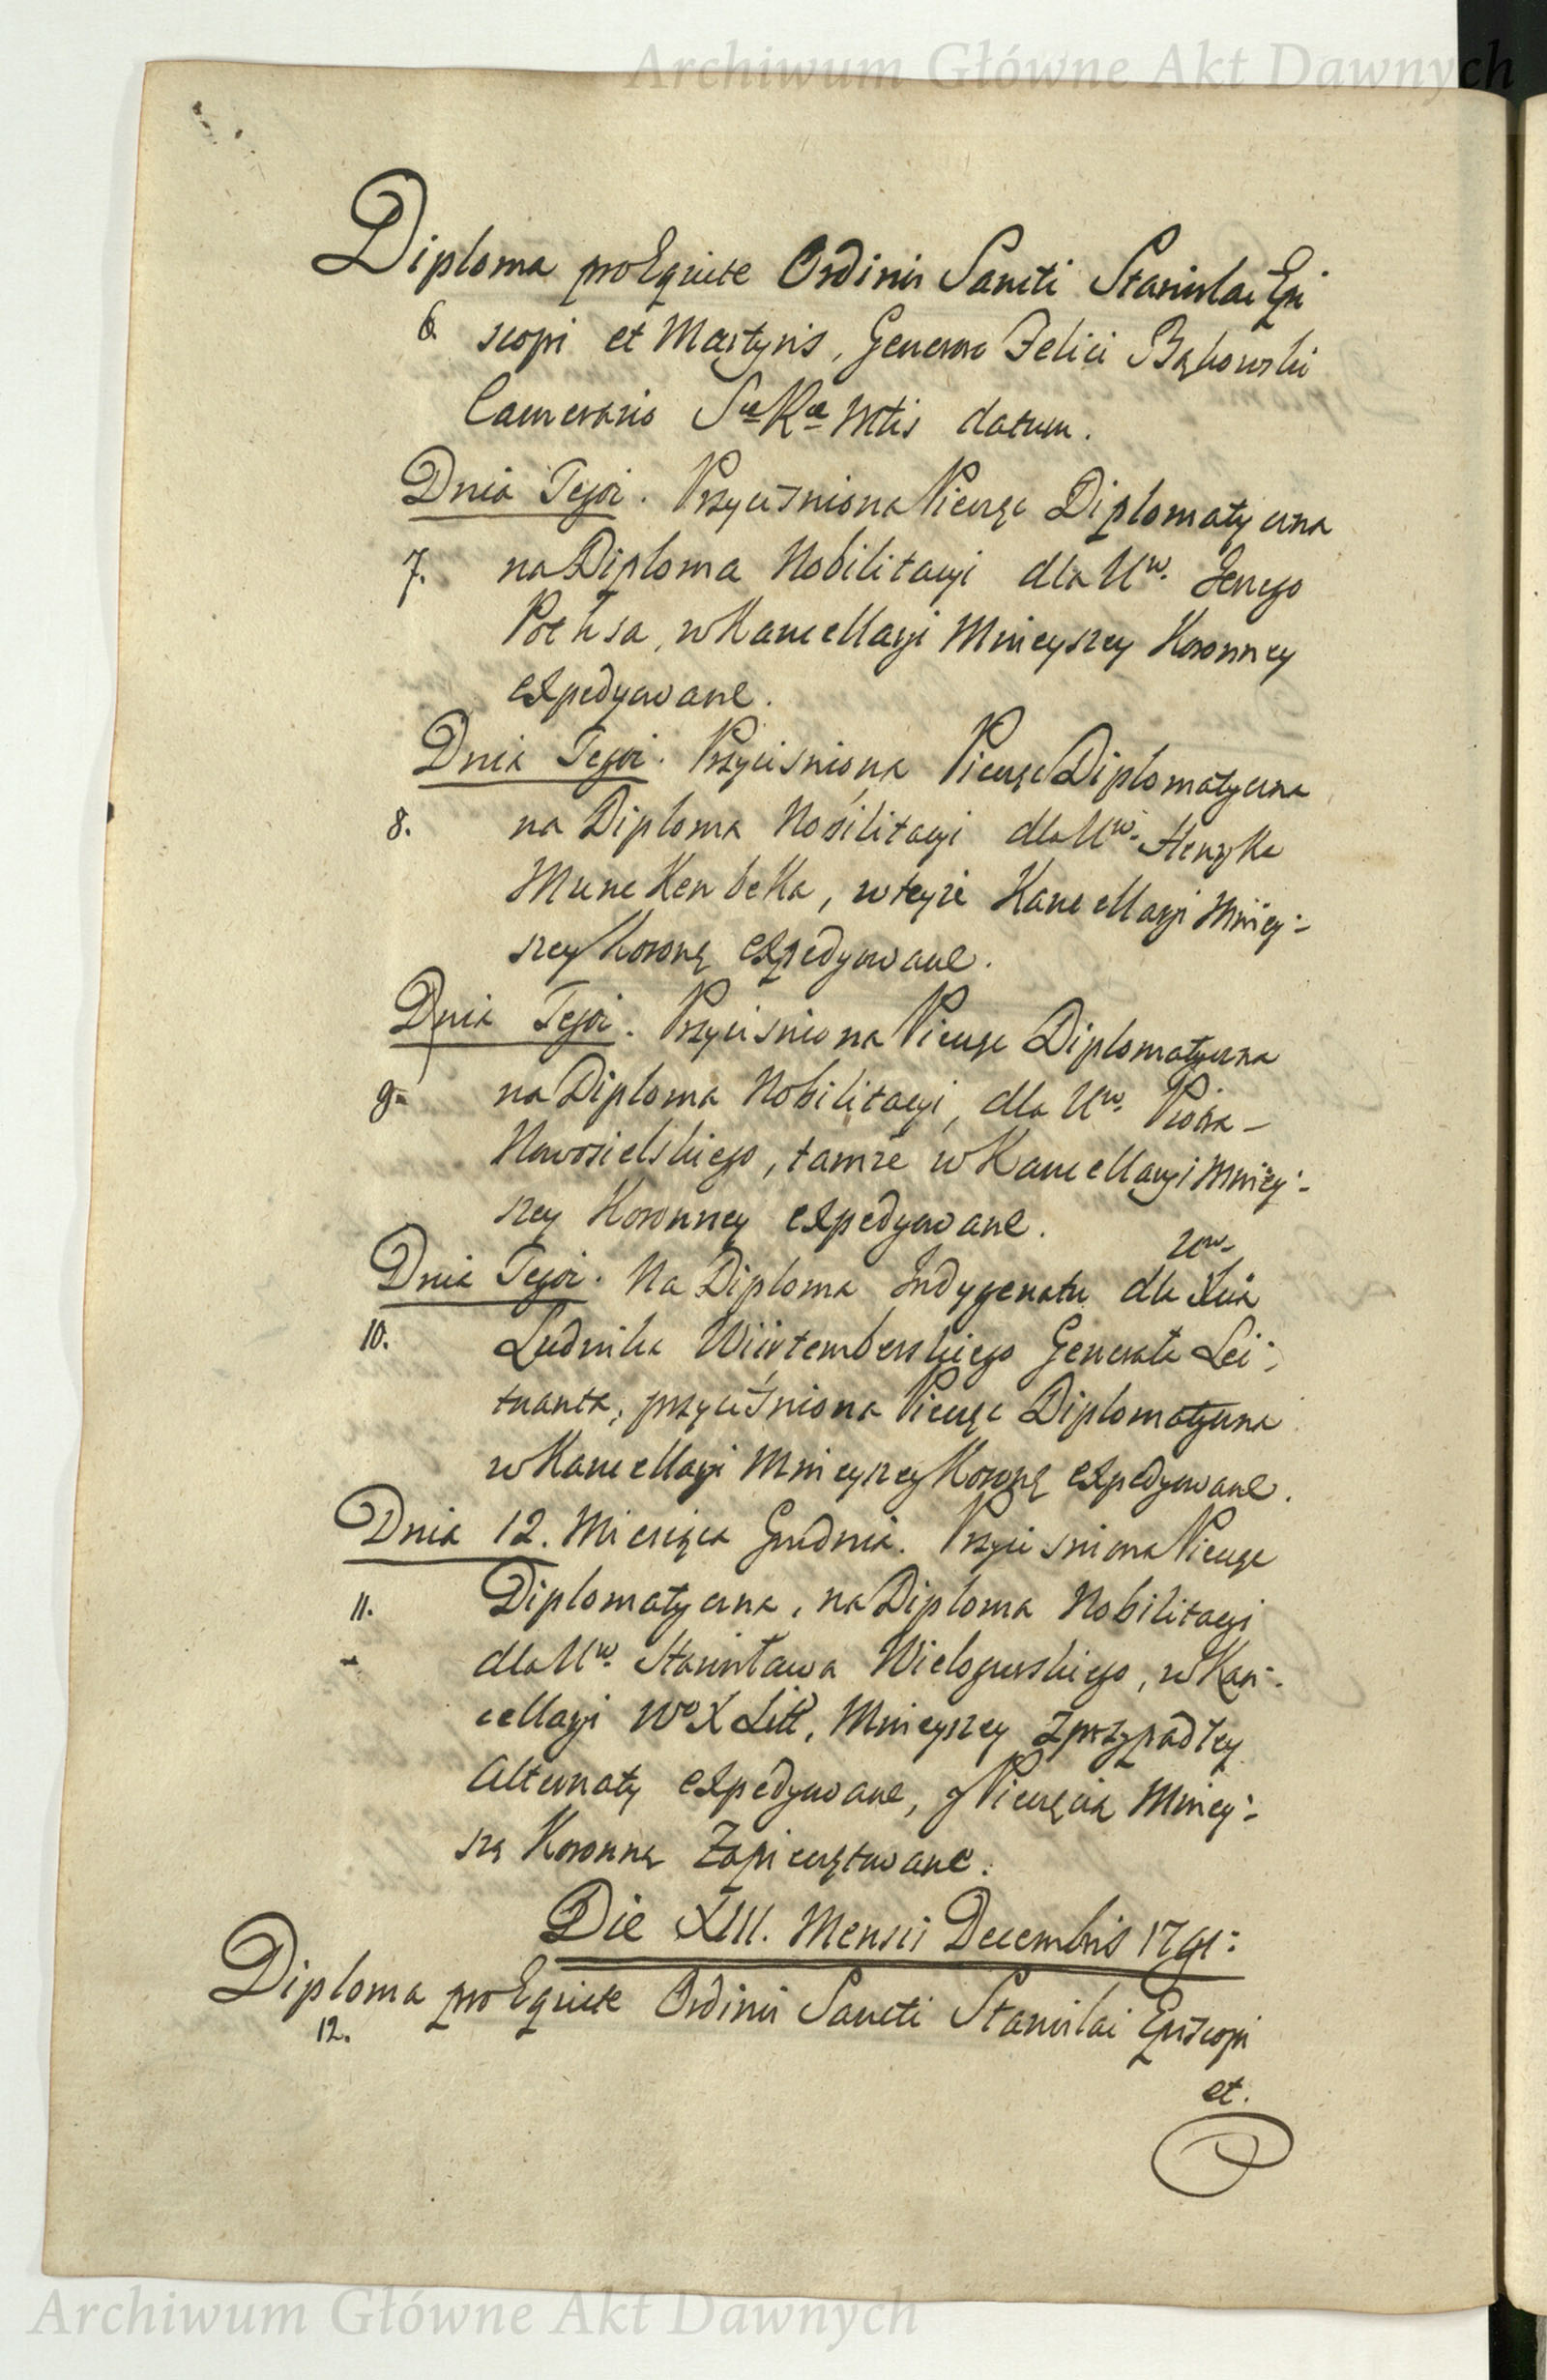 Archiwum Główne Akt Dawnych
Diploma pro Equite Ordinis Sancti Stanislai Epi
6. scopi et Martyris, Generoso Felici Bąkowski
Camerario Sæ Ræ Mtis datum.
Dnia Tegoż. Przyciśniona Pieczęć Diplomatyczna
7. na Diploma Nobilitacyi dla Ur. Jerzego
, w Kancellaryi Mnieyszey Koronney
expedyowane.
Dnia Tegoż. Przyciśniona Pieczęć Diplomatyczna
8. na Diploma Nobilitacyi dla Ur. Henryka
Munckenbeka, w teyże Kancellaryi Mniey:
szey Koronę expedyowane.
Dnia Tegoż. Przyciśniona Pieczęć Diplomatyczna
9. na Diploma Nobilitacyi, dla Ur. Piotra
Nowosielskiego, tamże w Kancellaryi Mniey:
szey Koronney expedyowane.
Dnia Tegoż. Na Diploma Indygenatu dla Xcia
10. Ludwika Würtemberskiego Generała Lei:
tnanta, przyciśniona Pieczęć Diplomatyczna
w Kancellaryi Mnieyszey Koronę expedyowane.
Dnia 12. Miesiąca Grudnia. Przyciśniona Pieczęć
11. Diplomatyczna, na Diploma Nobilitacyi
dla Ur. Stanisława Wielogurskiego, w Kan:
cellaryi Wo X Litt, Mnieyszey z przypadłey
Alternaty expedyowane, y Pieczęcią Mniey:
szą Koronną Zapieczętowane.
Die XIII. Mensis Decembris 1791:
Diploma pro Equite Ordinis Sancti Stanislai Episcopi
12.
et.
Archiwum Główne Akt Dawnych